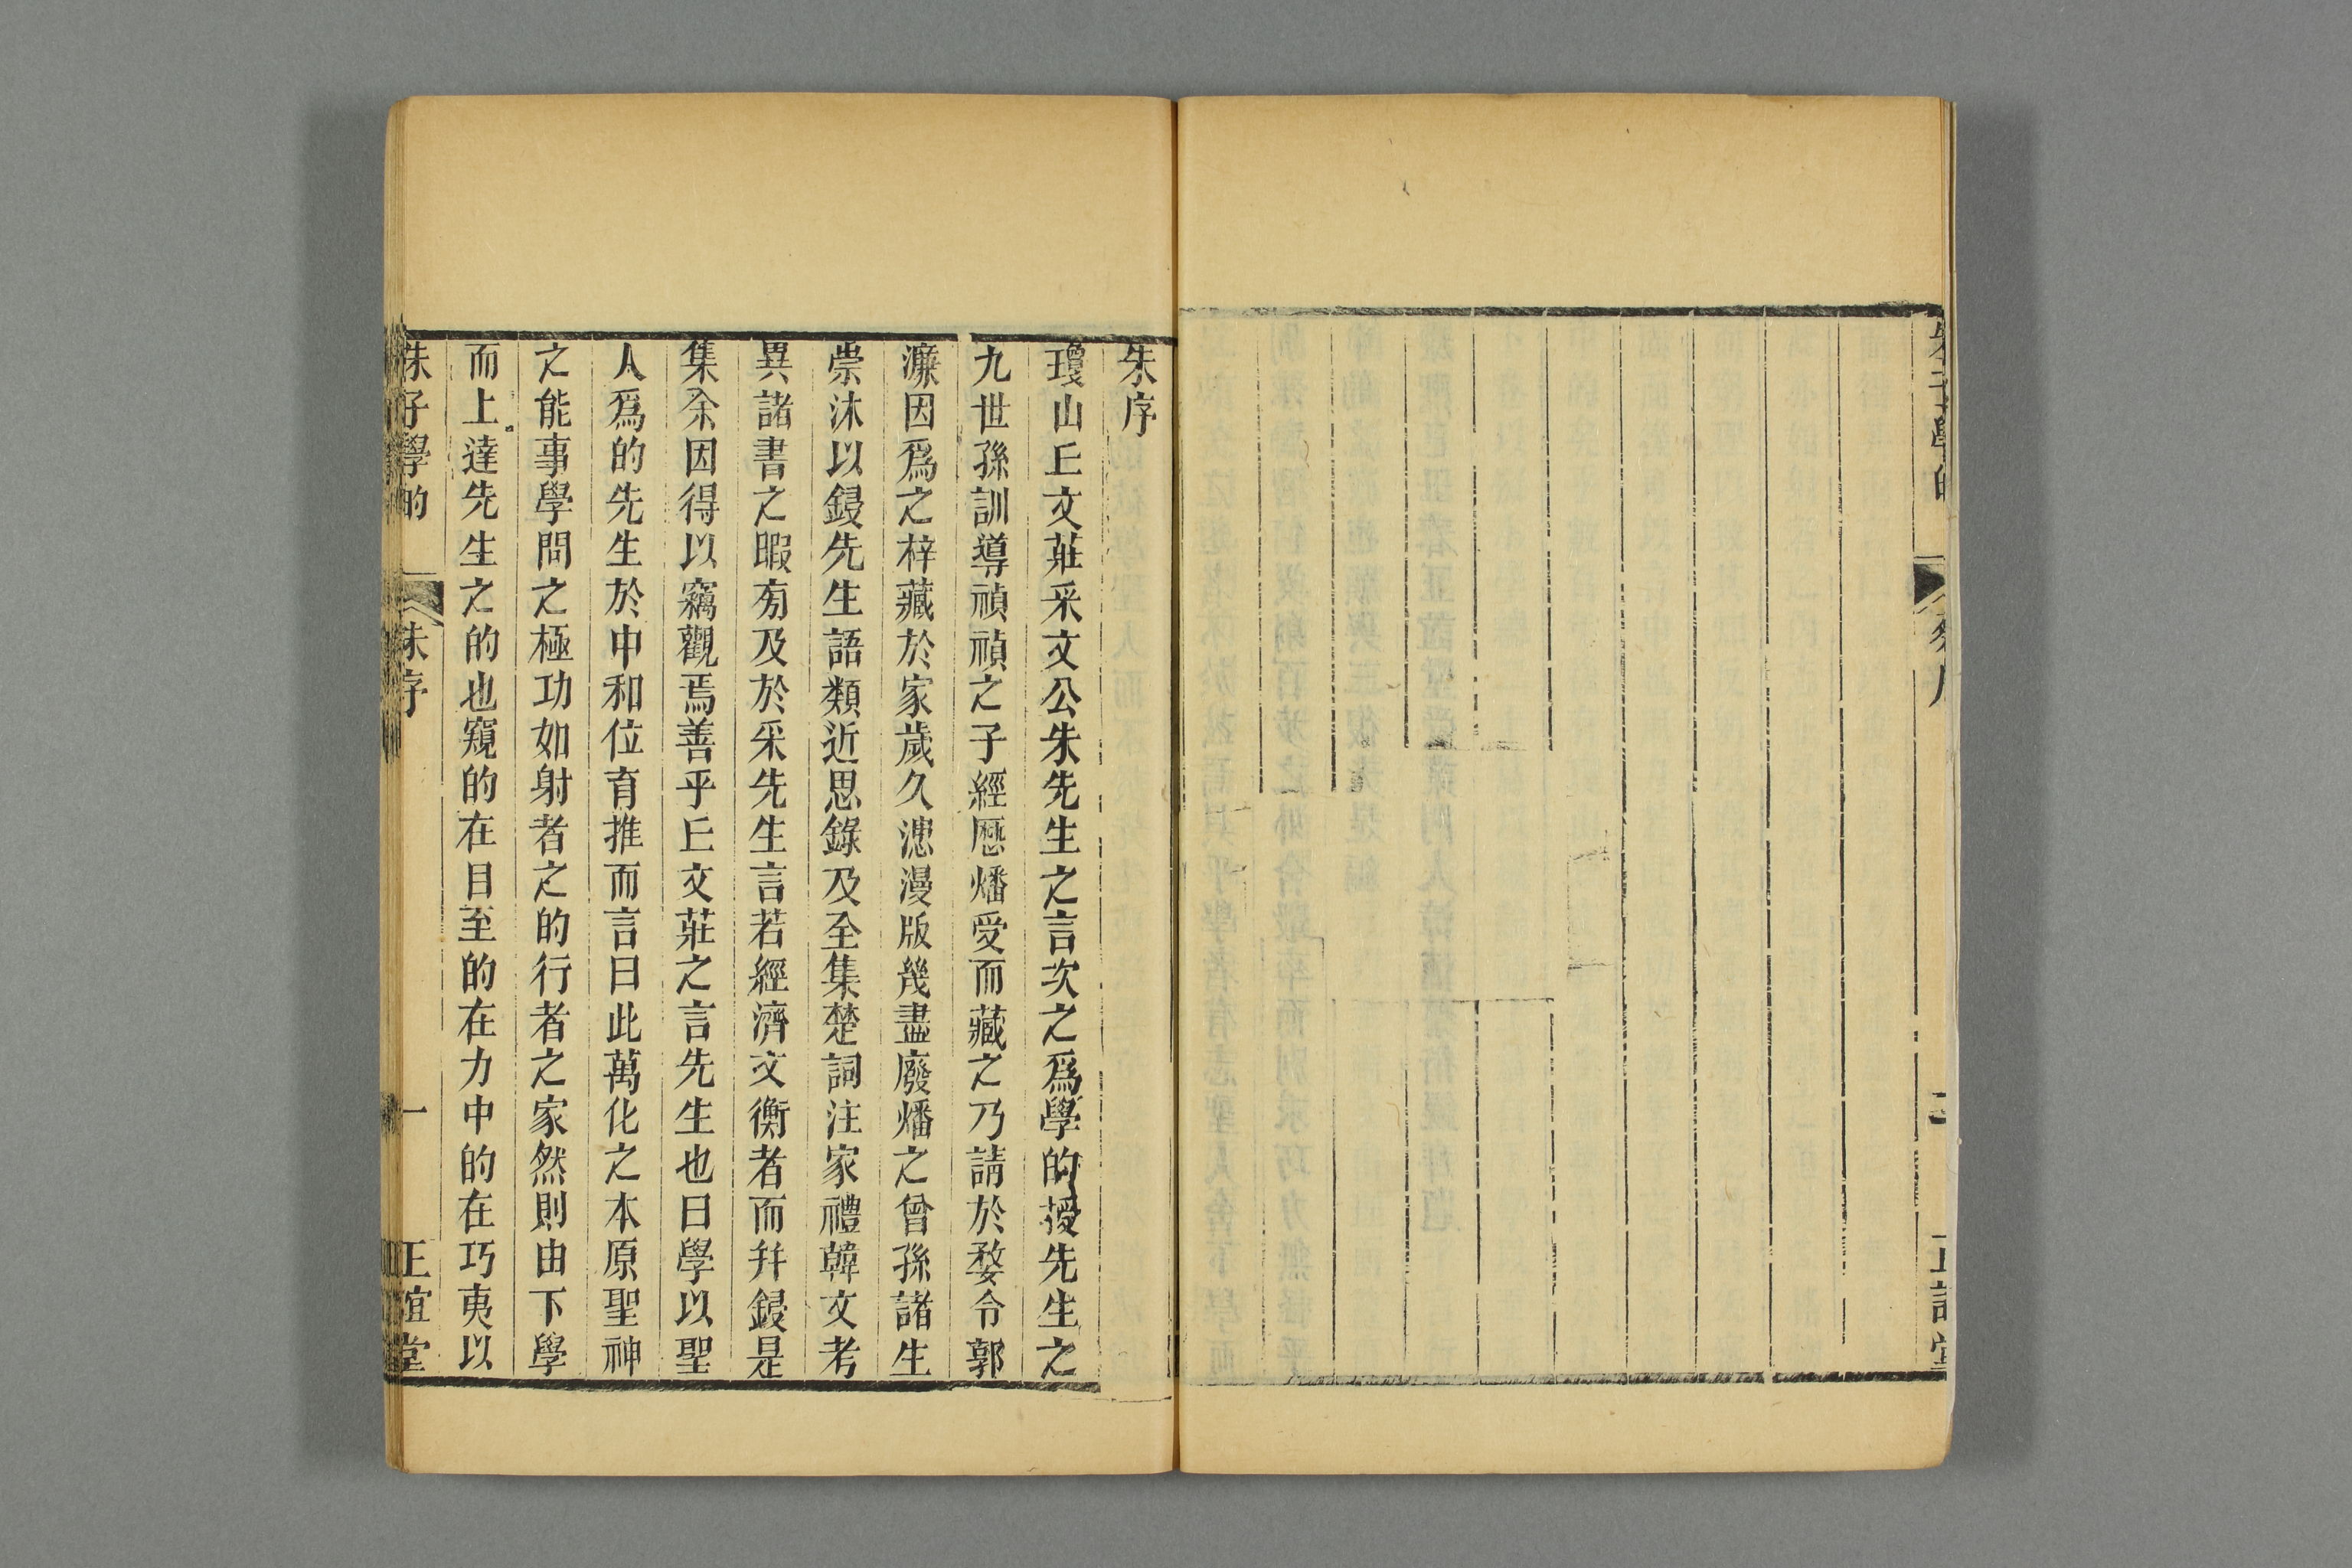 朱子學的
正誼堂
朱序
瓊山丘文莊采文公朱先生之言次之爲學的授先生之
九世孫訓導禎禎之子經歷燔受而藏之乃請於婺令郭
濂因爲之梓藏於家歲久漶漫版幾盡廢燔之曾孫諸生
崇沐以鋟先生語類近思錄及全集楚詞注家禮韓文考
異諸書之暇旁及於采先生言若經濟文衡者而幷鋟是
集余因得以竊觀焉善乎丘文莊之言先生也曰學以聖
人爲的先生於中和位育推而言曰此萬化之本原聖神
之能事學問之極功如射者之的行者之家然則由下學
而上達先生之的也窺的在目至的在力中的在巧夷以
朱子學的
朱序
一
正誼堂